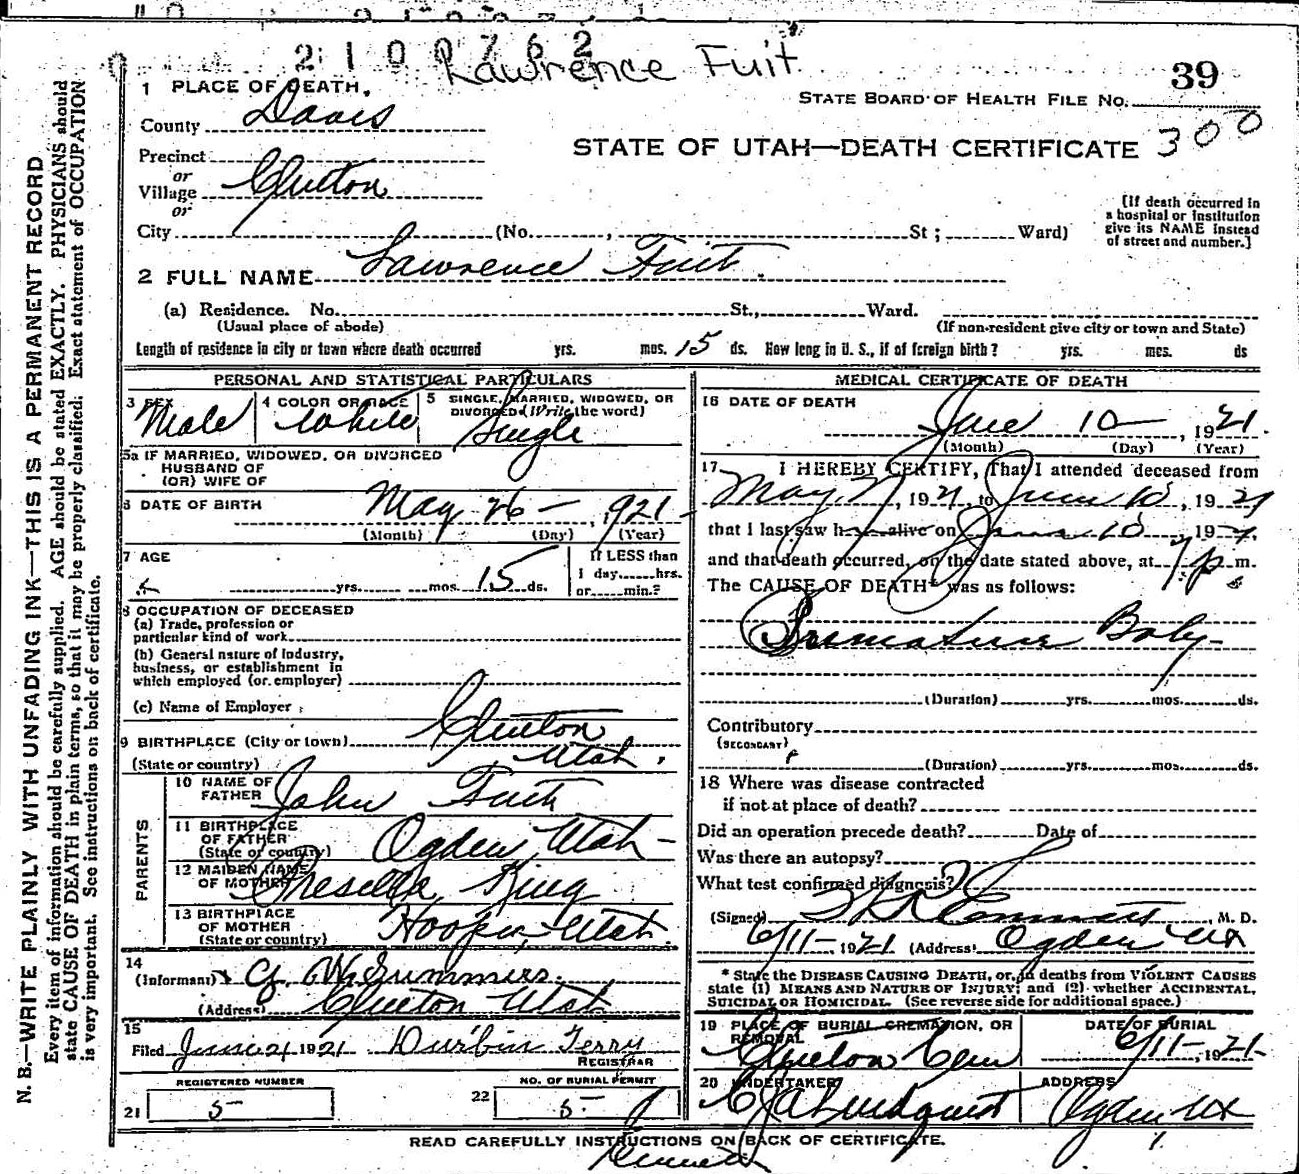 2100762
Lawrence Fuit
39
STATE BOARD OF HEALTH FILE No.
300
STATE OF UTAH—DEATH CERTIFICATE
1 PLACE OF DEATH.
County Davis
Precinct
or
Village Clinton
or
City (No. , St ; Ward)
[If death occurred in
a hospital or institution
give its NAME instead
of street and number.]
2 FULL NAME Lawrence Fuit.
(a) Residence. No. St., Ward.
(Usual place of abode) (If non-resident give city or town and State)
Length of residence in city or town where death occurred yrs. mos. 15 ds. How long in U. S., if of foreign birth? yrs. mos. ds
PERSONAL AND STATISTICAL PARTICULARS
3 SEX Male
4 COLOR OR RACE White
5 SINGLE, MARRIED, WIDOWED, OR
DIVORCED (Write the word)
Single
5a IF MARRIED, WIDOWED, OR DIVORCED
HUSBAND OF
(OR) WIFE OF
6 DATE OF BIRTH May 26 — , 1921
(Month) (Day) (Year)
7 AGE yrs. mos. 15 ds.
If LESS than
1 day......hrs.
or......min.?
8 OCCUPATION OF DECEASED
(a) Trade, profession or
particular kind of work
(b) General nature of industry,
business, or establishment in
which employed (or employer)
(c) Name of Employer
9 BIRTHPLACE (City or town) Clinton
(State or country) Utah.
PARENTS
10 NAME OF
FATHER John Fuit
11 BIRTHPLACE
OF FATHER
(State or country) Ogden, Utah —
12 MAIDEN NAME
OF MOTHER King
13 BIRTHPLACE
OF MOTHER
(State or country) Hooper, Utah.
14
(Informant) G. W. Summers.
(Address) Clinton Utah
15
Filed June 21 1921 Durbin Terry
REGISTRAR
REGISTERED NUMBER
21 5
NO. OF BURIAL PERMIT
22 5
MEDICAL CERTIFICATE OF DEATH
16 DATE OF DEATH
June 10 — , 1921.
(Month) (Day) (Year)
17 I HEREBY CERTIFY, That I attended deceased from
May 27, 1921, to June 10, 1921
that I last saw h alive on June 10 1921,
and that death occurred, on the date stated above, at 7 p. m.
The CAUSE OF DEATH* was as follows:
Premature Baby —
(Duration) yrs. mos. ds.
Contributory
(SECONDARY)
(Duration) yrs. mos. ds.
18 Where was disease contracted
if not at place of death?
Did an operation precede death? Date of
Was there an autopsy?
What test confirmed diagnosis?
(Signed) Emmett, M. D.
6/11 — 1921 (Address) Ogden Ut
* State the DISEASE CAUSING DEATH, or, in deaths from VIOLENT CAUSES
state (1) MEANS AND NATURE OF INJURY; and (2) whether ACCIDENTAL,
SUICIDAL OR HOMICIDAL. (See reverse side for additional space.)
19 PLACE OF BURIAL CREMATION, OR
REMOVAL
Clinton Cem
DATE OF BURIAL
6/11 —, 1921 —
20 UNDERTAKER
C J A Lindquist
ADDRESS
Ogden Ut
READ CAREFULLY INSTRUCTIONS ON BACK OF CERTIFICATE.
Emmett
N. B.—WRITE PLAINLY WITH UNFADING INK—THIS IS A PERMANENT RECORD
Every item of information should be carefully supplied. AGE should be stated EXACTLY. PHYSICIANS should
state CAUSE OF DEATH in plain terms, so that it may be properly classified. Exact statement of OCCUPATION
is very important. See instructions on back of certificate.